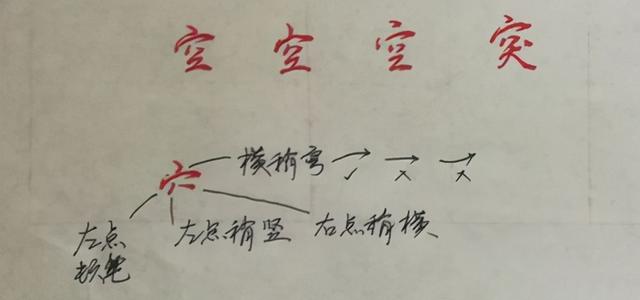 空 空 空 突
横稍弯 ✓ × ×
穴
左点 左点稍竖 右点稍横